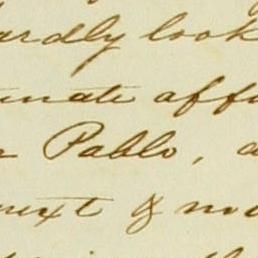 ardly look
unate aff
Pablo, a
next & no